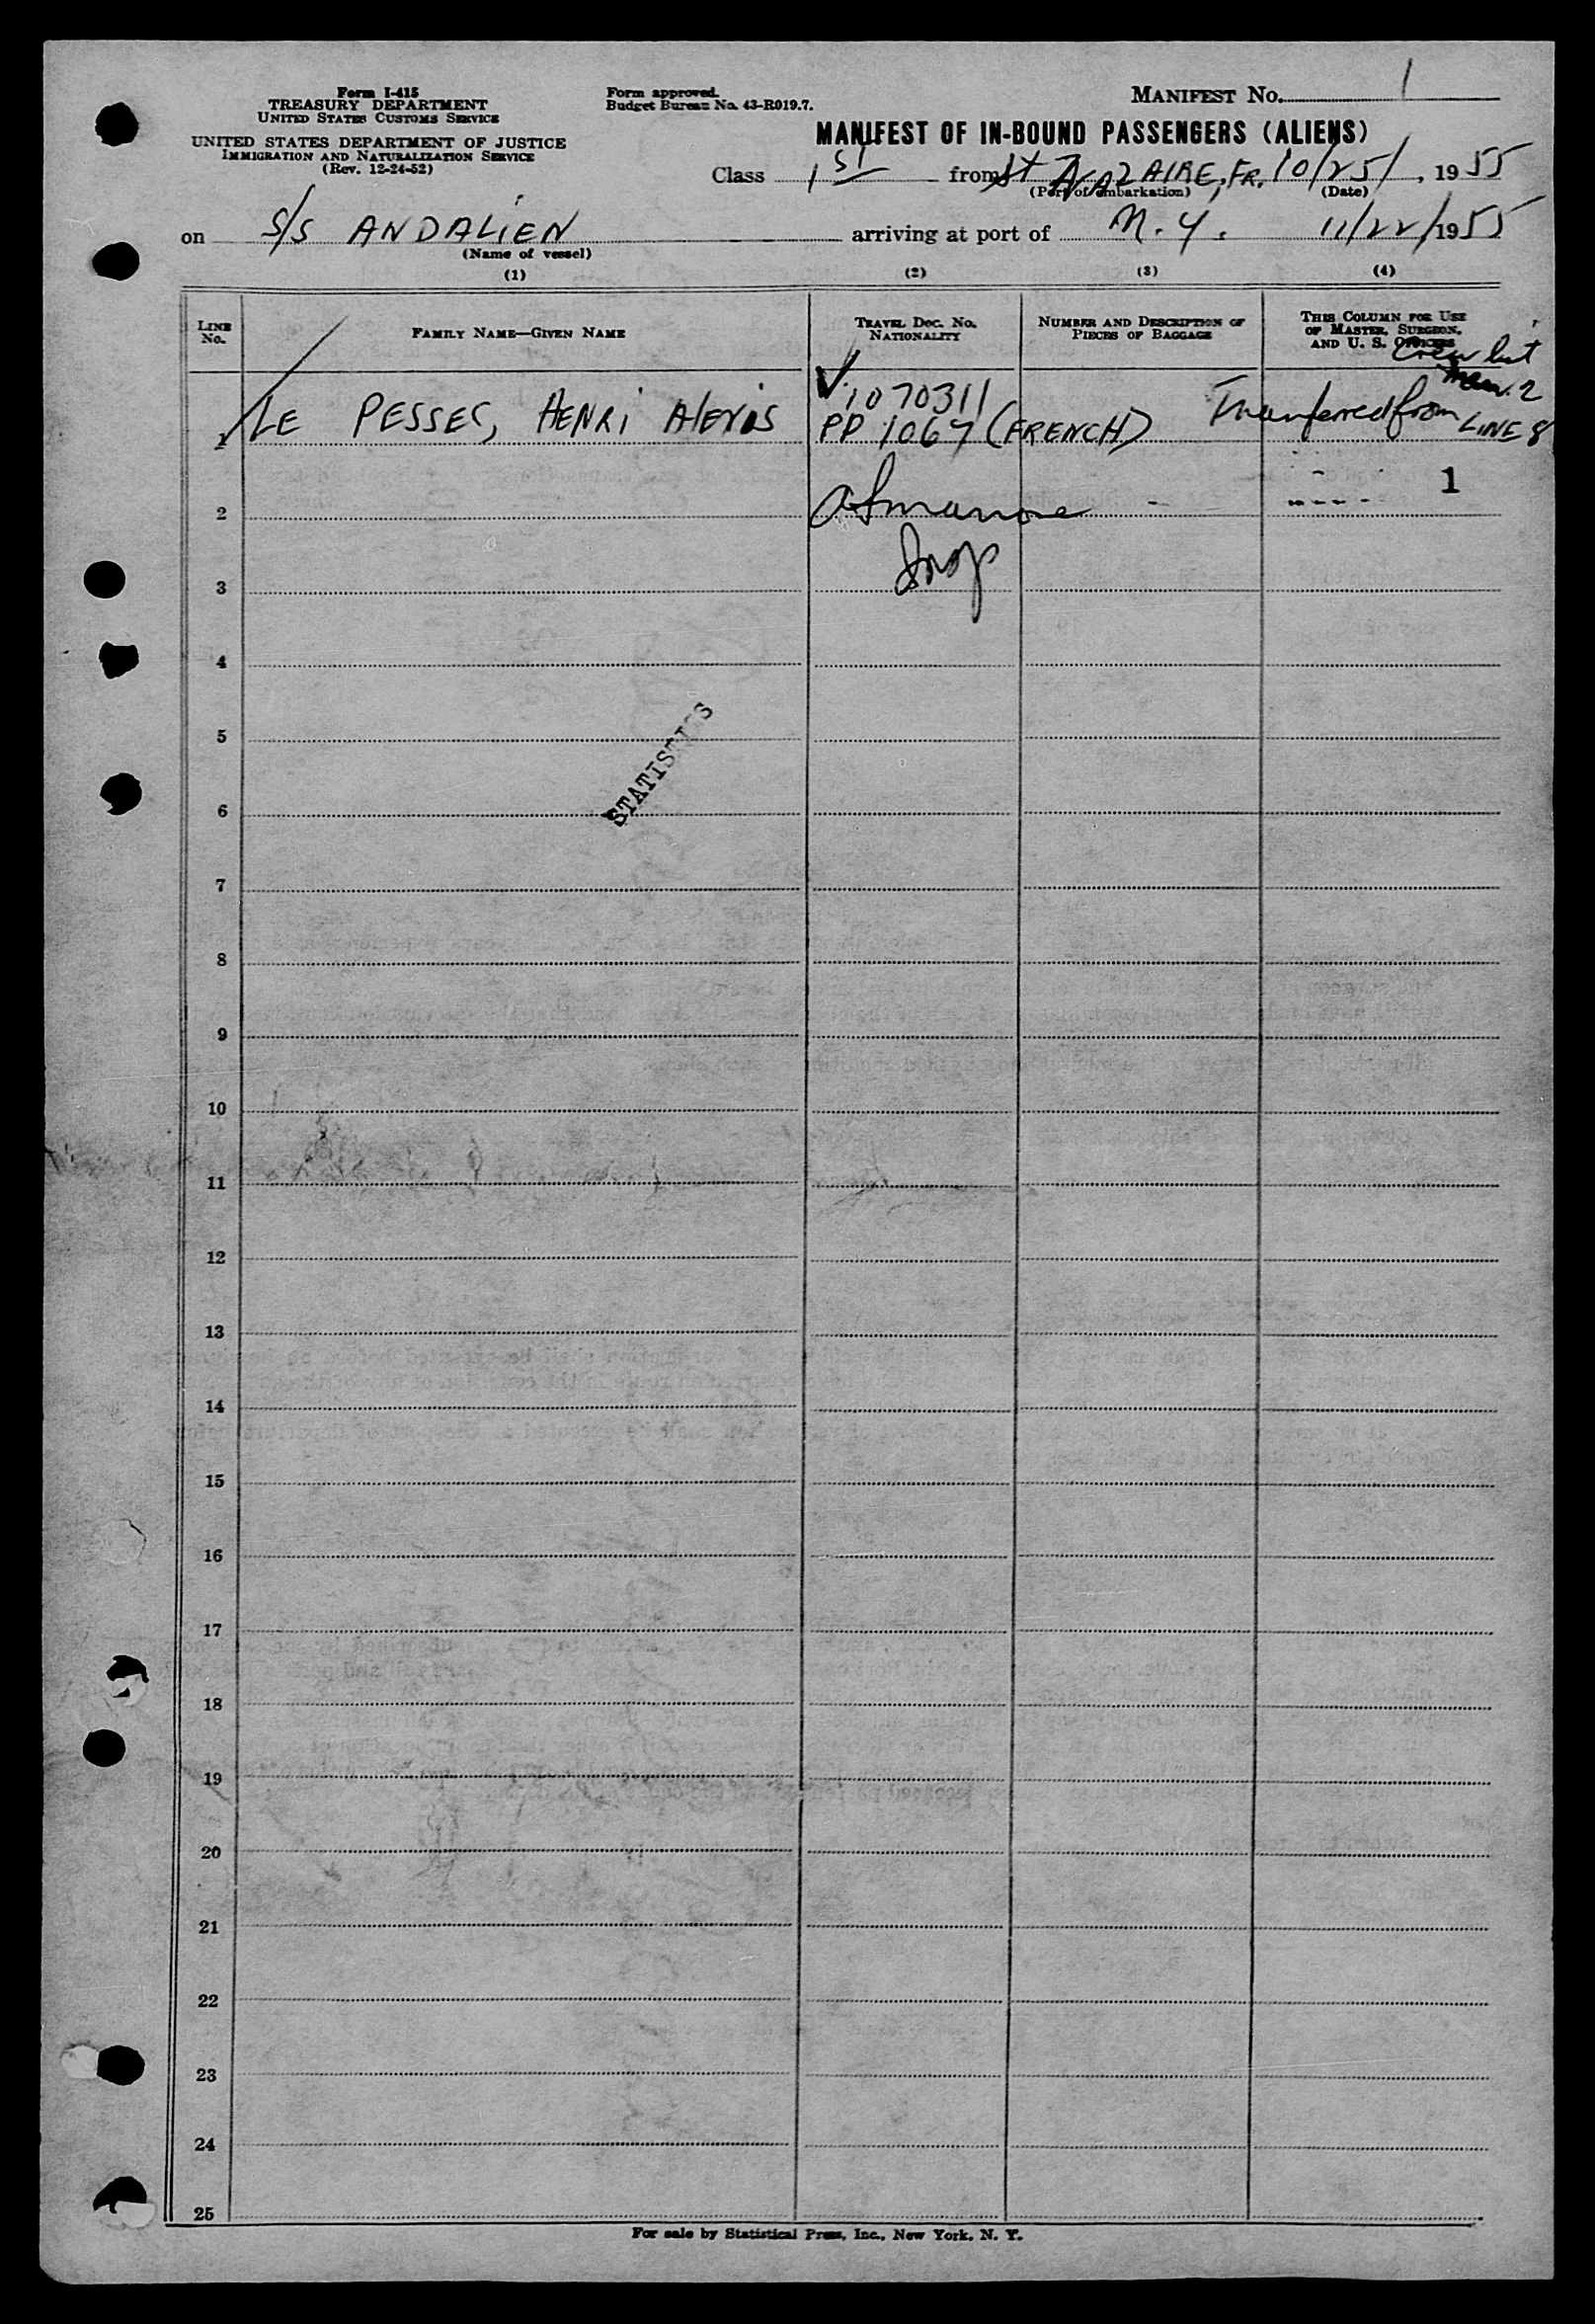 Form I-415
TREASURY DEPARTMENT
UNITED STATES CUSTOMS SERVICE
UNITED STATES DEPARTMENT OF JUSTICE
IMMIGRATION AND NATURALIZATION SERVICE
(Rev. 12-24-52)
Form approved.
Budget Bureau No. 43-R019.7.
MANIFEST No. 1
MANIFEST OF IN-BOUND PASSENGERS (ALIENS)
Class 1st from St NAZAIRE, FR. 10/25/, 1955
(Port of embarkation) (Date)
on S/S ANDALIEN arriving at port of N.Y. 11/22/1955
(Name of vessel)
(1) (2) (3) (4)
LINE No. FAMILY NAME—GIVEN NAME TRAVEL DOC. NO. NATIONALITY NUMBER AND DESCRIPTION OF PIECES OF BAGGAGE THIS COLUMN FOR USE OF MASTER, SURGEON, AND U. S. OFFICERS
Crew list
Man. 2
V1070311
1 LE PESSEC, HENRI Alexis PP 1067 (FRENCH) Transferred from LINE 8
1
2
Insp
3
4
5
STATISTICS
6
7
8
9
10
11
12
13
14
15
16
17
18
19
20
21
22
23
24
25
For sale by Statistical Press, Inc., New York, N. Y.